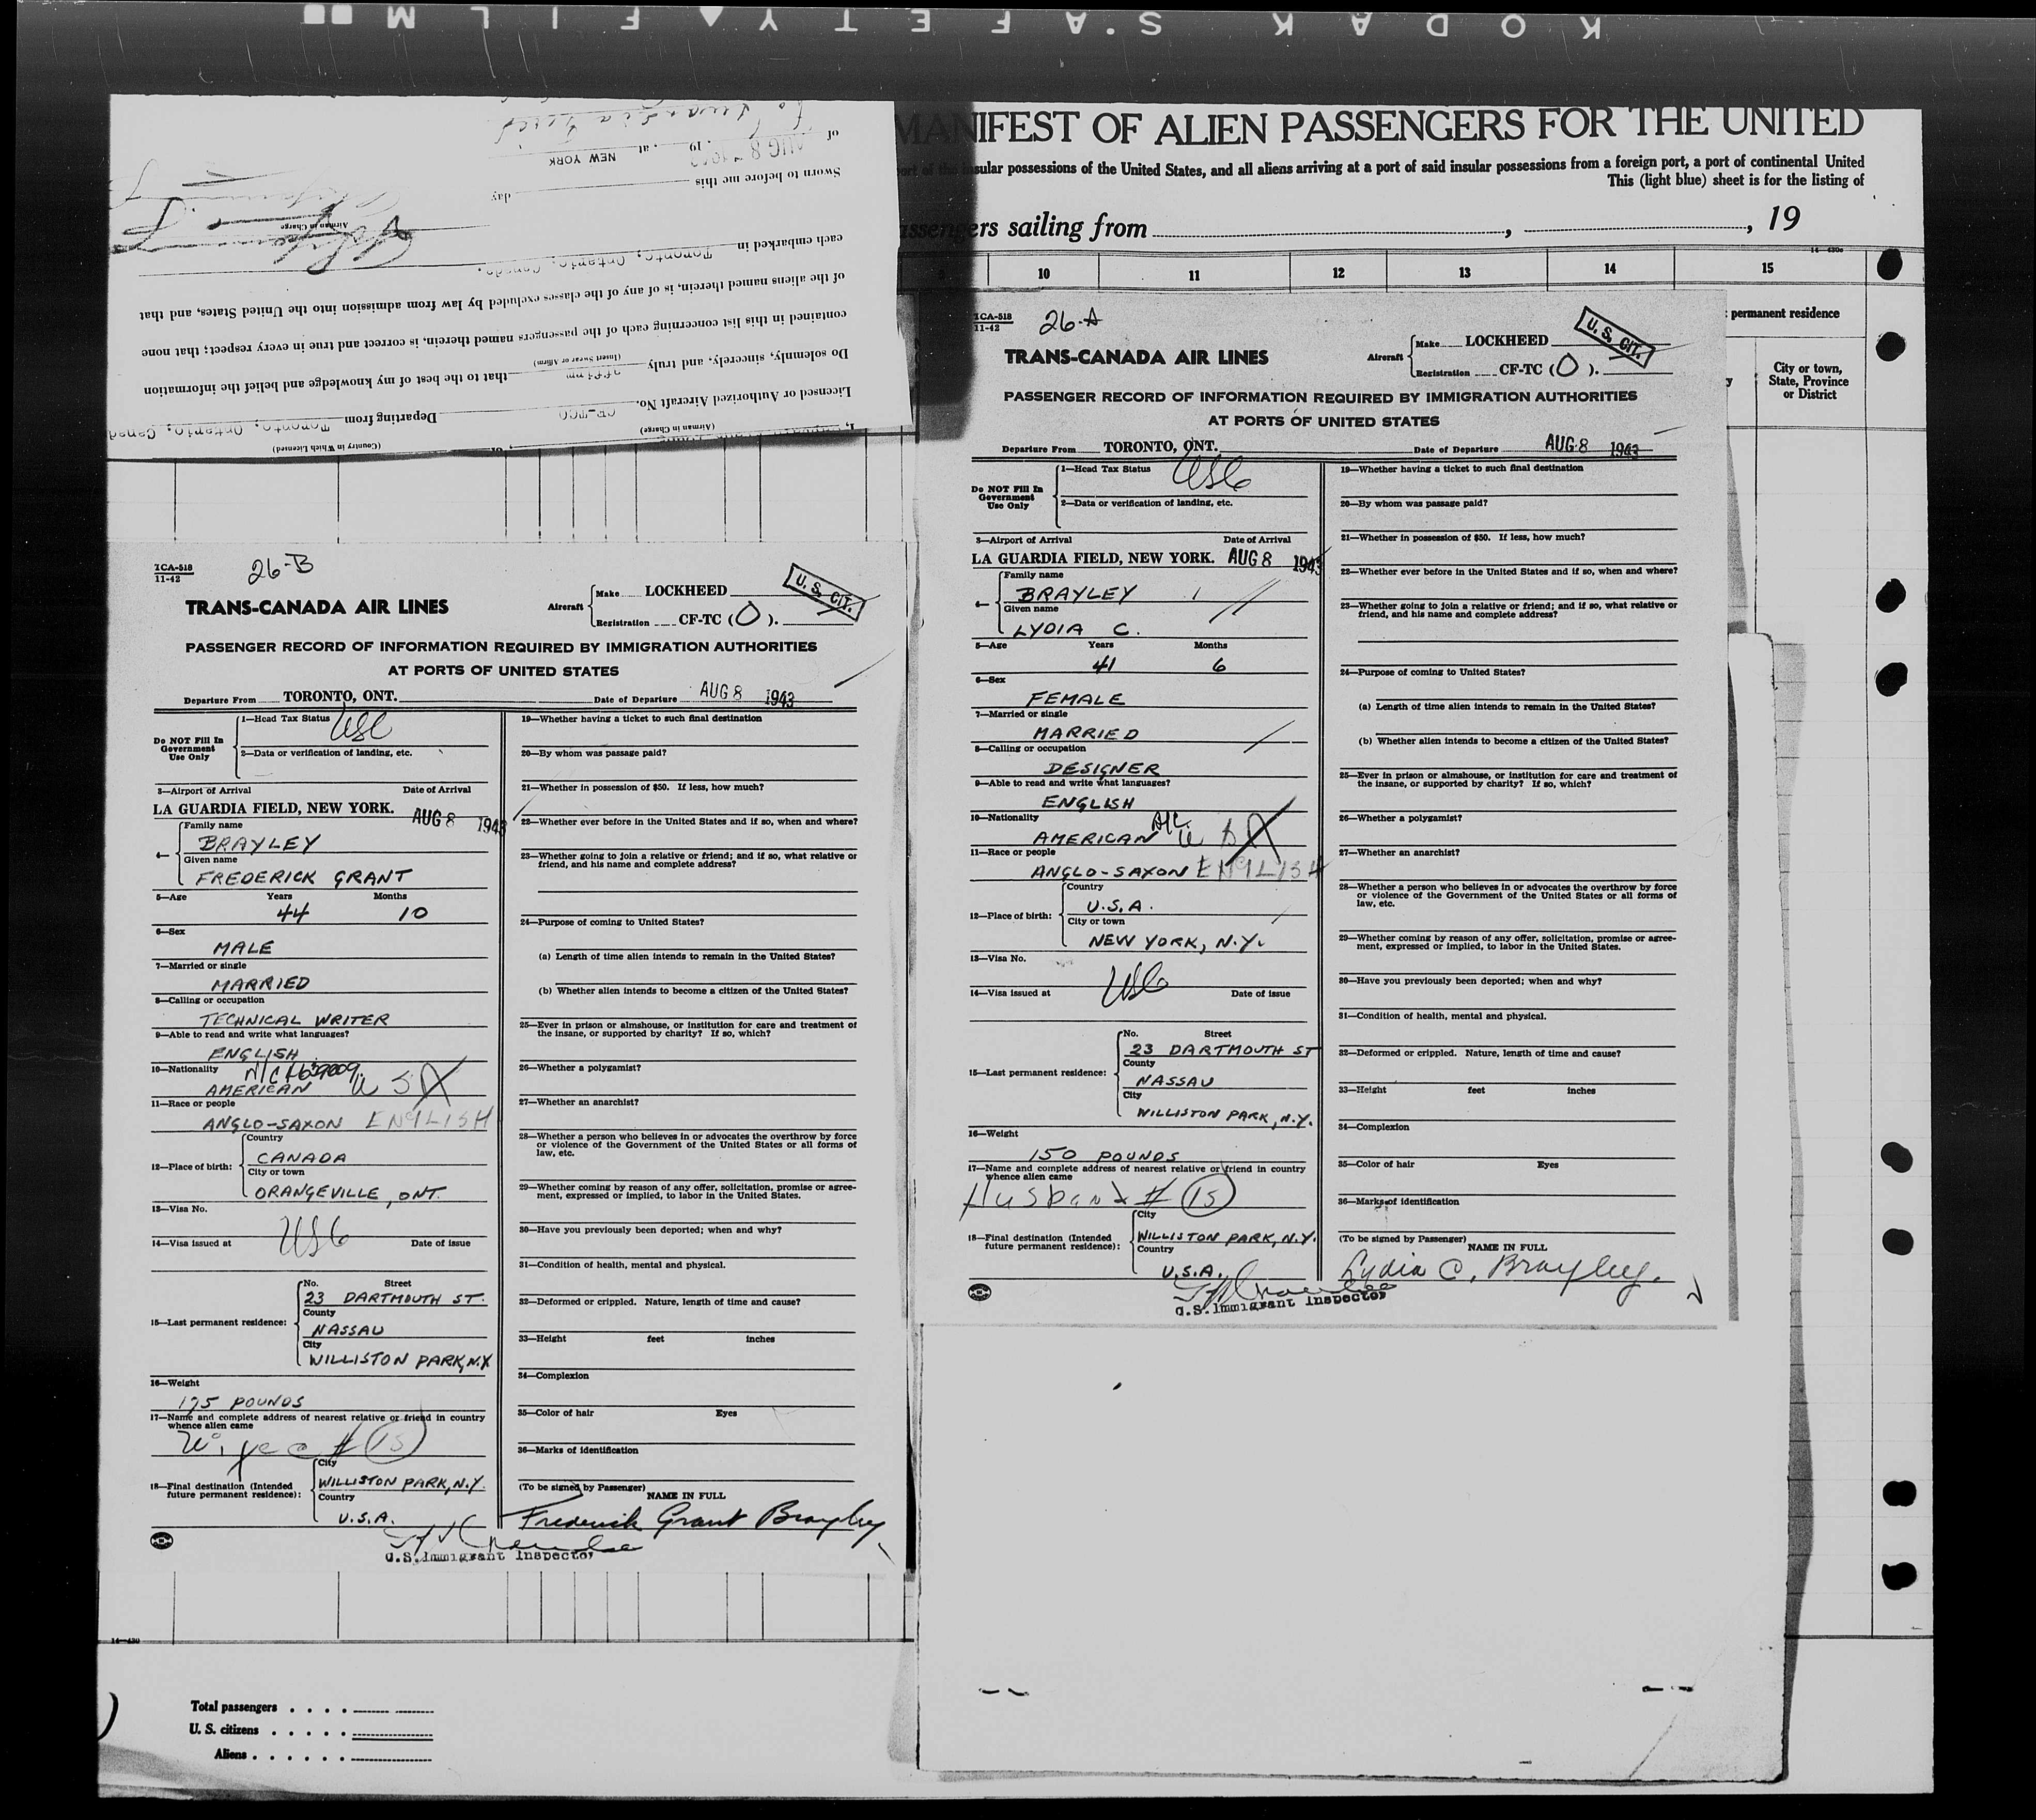 KODAK SAFETY FILM
MANIFEST OF ALIEN PASSENGERS FOR THE UNITED
insular possessions of the United States, and all aliens arriving at a port of said insular possessions from a foreign port, a port of continental United
This (light blue) sheet is for the listing of
passengers sailing from , , 19
14—430c
10 11 12 13 14 15
permanent residence
City or town,
State, Province
or District
(Country in Which Licensed)
(Airman in Charge)
Licensed or Authorized Aircraft No. CF-TCO Departing from Toronto, Ontario, Canad
Do solemnly, sincerely, and truly affirm that to the best of my knowledge and belief the information
(Insert Swear or Affirm)
contained in this list concerning each of the passengers named therein, is correct and true in every respect; that none
of the aliens named therein, is of any of the classes excluded by law from admission into the United States, and that
each embarked in Toronto, Ontario, Canada.
Airman in Charge
Sworn to before me this day
of AUG 8 , 19 , at NEW YORK
TCA-518
11-42
26-B
TRANS-CANADA AIR LINES
Aircraft
Make LOCKHEED
Registration CF-TC (O).
U. S. CIT.
PASSENGER RECORD OF INFORMATION REQUIRED BY IMMIGRATION AUTHORITIES
AT PORTS OF UNITED STATES
Departure From TORONTO, ONT. Date of Departure AUG 8 1943
Do NOT Fill In
Government
Use Only
1—Head Tax Status USC
2—Data or verification of landing, etc.
3—Airport of Arrival Date of Arrival
LA GUARDIA FIELD, NEW YORK. AUG 8 1943
4—
Family name
BRAYLEY
Given name
FREDERICK GRANT
5—Age Years Months
44 10
6—Sex
MALE
7—Married or single
MARRIED
8—Calling or occupation
TECHNICAL WRITER
9—Able to read and write what languages?
ENGLISH
10—Nationality
AMERICAN USA
11—Race or people
ANGLO-SAXON ENGLISH
12—Place of birth:
Country
CANADA
City or town
ORANGEVILLE, ONT.
13—Visa No.
USC
14—Visa issued at Date of issue
15—Last permanent residence:
No. Street
23 DARTMOUTH ST.
County
NASSAU
City
WILLISTON PARK, N.Y.
16—Weight
175 POUNDS
17—Name and complete address of nearest relative or friend in country
whence alien came
# (15)
18—Final destination (Intended
future permanent residence):
City
WILLISTON PARK, N.Y.
Country
U.S.A.
U.S. Immigrant Inspector
19—Whether having a ticket to such final destination
20—By whom was passage paid?
21—Whether in possession of $50. If less, how much?
22—Whether ever before in the United States and if so, when and where?
23—Whether going to join a relative or friend; and if so, what relative or
friend, and his name and complete address?
24—Purpose of coming to United States?
(a) Length of time alien intends to remain in the United States?
(b) Whether alien intends to become a citizen of the United States?
25—Ever in prison or almshouse, or institution for care and treatment of
the insane, or supported by charity? If so, which?
26—Whether a polygamist?
27—Whether an anarchist?
28—Whether a person who believes in or advocates the overthrow by force
or violence of the Government of the United States or all forms of
law, etc.
29—Whether coming by reason of any offer, solicitation, promise or agree-
ment, expressed or implied, to labor in the United States.
30—Have you previously been deported; when and why?
31—Condition of health, mental and physical.
32—Deformed or crippled. Nature, length of time and cause?
33—Height feet inches
34—Complexion
35—Color of hair Eyes
36—Marks of identification
(To be signed by Passenger)
NAME IN FULL
Frederick Grant Brayley
TCA-518
11-42
26-A
TRANS-CANADA AIR LINES
Aircraft
Make LOCKHEED
Registration CF-TC (O).
U. S. CIT.
PASSENGER RECORD OF INFORMATION REQUIRED BY IMMIGRATION AUTHORITIES
AT PORTS OF UNITED STATES
Departure From TORONTO, ONT. Date of Departure AUG 8 1943
Do NOT Fill In
Government
Use Only
1—Head Tax Status USC
2—Data or verification of landing, etc.
3—Airport of Arrival Date of Arrival
LA GUARDIA FIELD, NEW YORK. AUG 8 1943
4—
Family name
BRAYLEY
Given name
LYDIA C.
5—Age Years Months
41 6
6—Sex
FEMALE
7—Married or single
MARRIED
8—Calling or occupation
DESIGNER
9—Able to read and write what languages?
ENGLISH
10—Nationality
AMERICAN USA
11—Race or people
ANGLO-SAXON ENGLISH
12—Place of birth:
Country
U.S.A.
City or town
NEW YORK, N.Y.
13—Visa No.
USC
14—Visa issued at Date of issue
15—Last permanent residence:
No. Street
23 DARTMOUTH ST
County
NASSAU
City
WILLISTON PARK, N.Y.
16—Weight
150 POUNDS
17—Name and complete address of nearest relative or friend in country
whence alien came
Husband # (15)
18—Final destination (Intended
future permanent residence):
City
WILLISTON PARK, N.Y.
Country
U.S.A.
U.S. Immigrant Inspector
19—Whether having a ticket to such final destination
20—By whom was passage paid?
21—Whether in possession of $50. If less, how much?
22—Whether ever before in the United States and if so, when and where?
23—Whether going to join a relative or friend; and if so, what relative or
friend, and his name and complete address?
24—Purpose of coming to United States?
(a) Length of time alien intends to remain in the United States?
(b) Whether alien intends to become a citizen of the United States?
25—Ever in prison or almshouse, or institution for care and treatment of
the insane, or supported by charity? If so, which?
26—Whether a polygamist?
27—Whether an anarchist?
28—Whether a person who believes in or advocates the overthrow by force
or violence of the Government of the United States or all forms of
law, etc.
29—Whether coming by reason of any offer, solicitation, promise or agree-
ment, expressed or implied, to labor in the United States.
30—Have you previously been deported; when and why?
31—Condition of health, mental and physical.
32—Deformed or crippled. Nature, length of time and cause?
33—Height feet inches
34—Complexion
35—Color of hair Eyes
36—Marks of identification
(To be signed by Passenger)
NAME IN FULL
Lydia C. Brayley.
14—430
Total passengers
U. S. citizens
Aliens